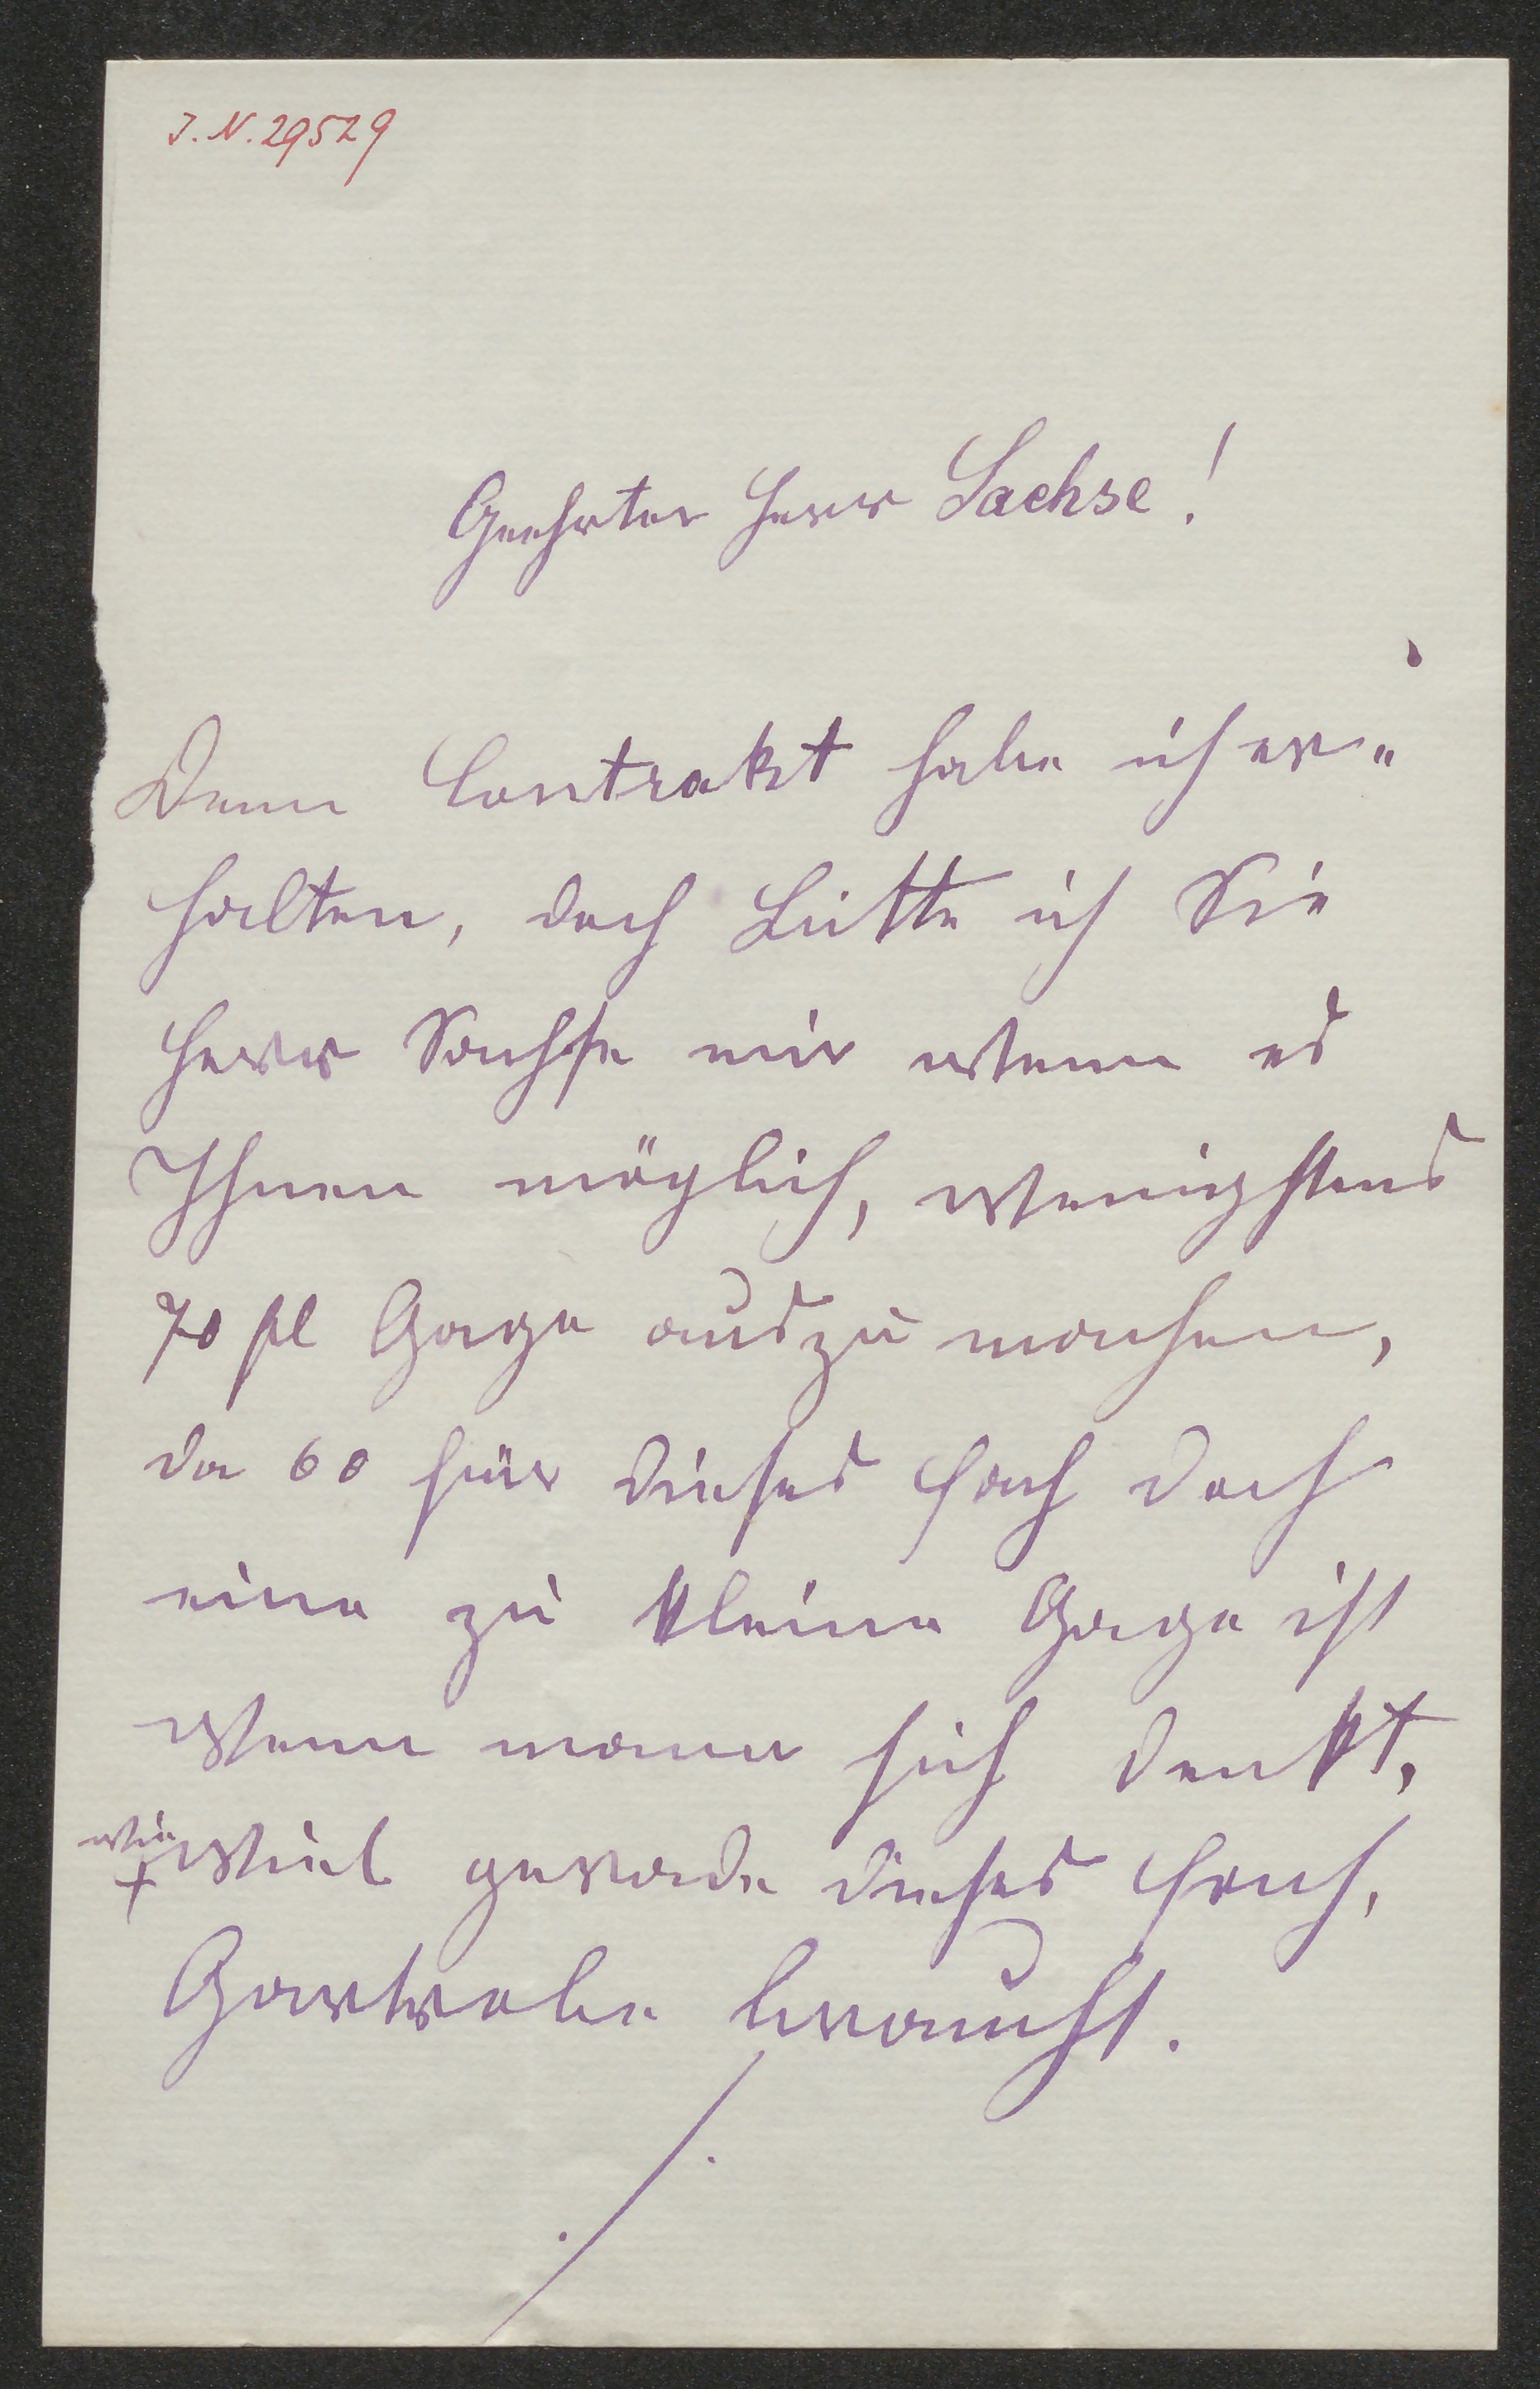 J. N. 29529
Geehrter Herr Sachse!
Denn Contrakt habe ich er„
halten, doch bitte ich Sie
Herr Sachse mir wenn es
Ihnen möglich, wenigstens
70 fl Gage auszumachen,
da 60 für dieses Fach doch
eine zu kleine Gage ist
wenn mann sich denkt,
wie
+ viel gerade dieses Fach,
Gartrobe braucht.
./.